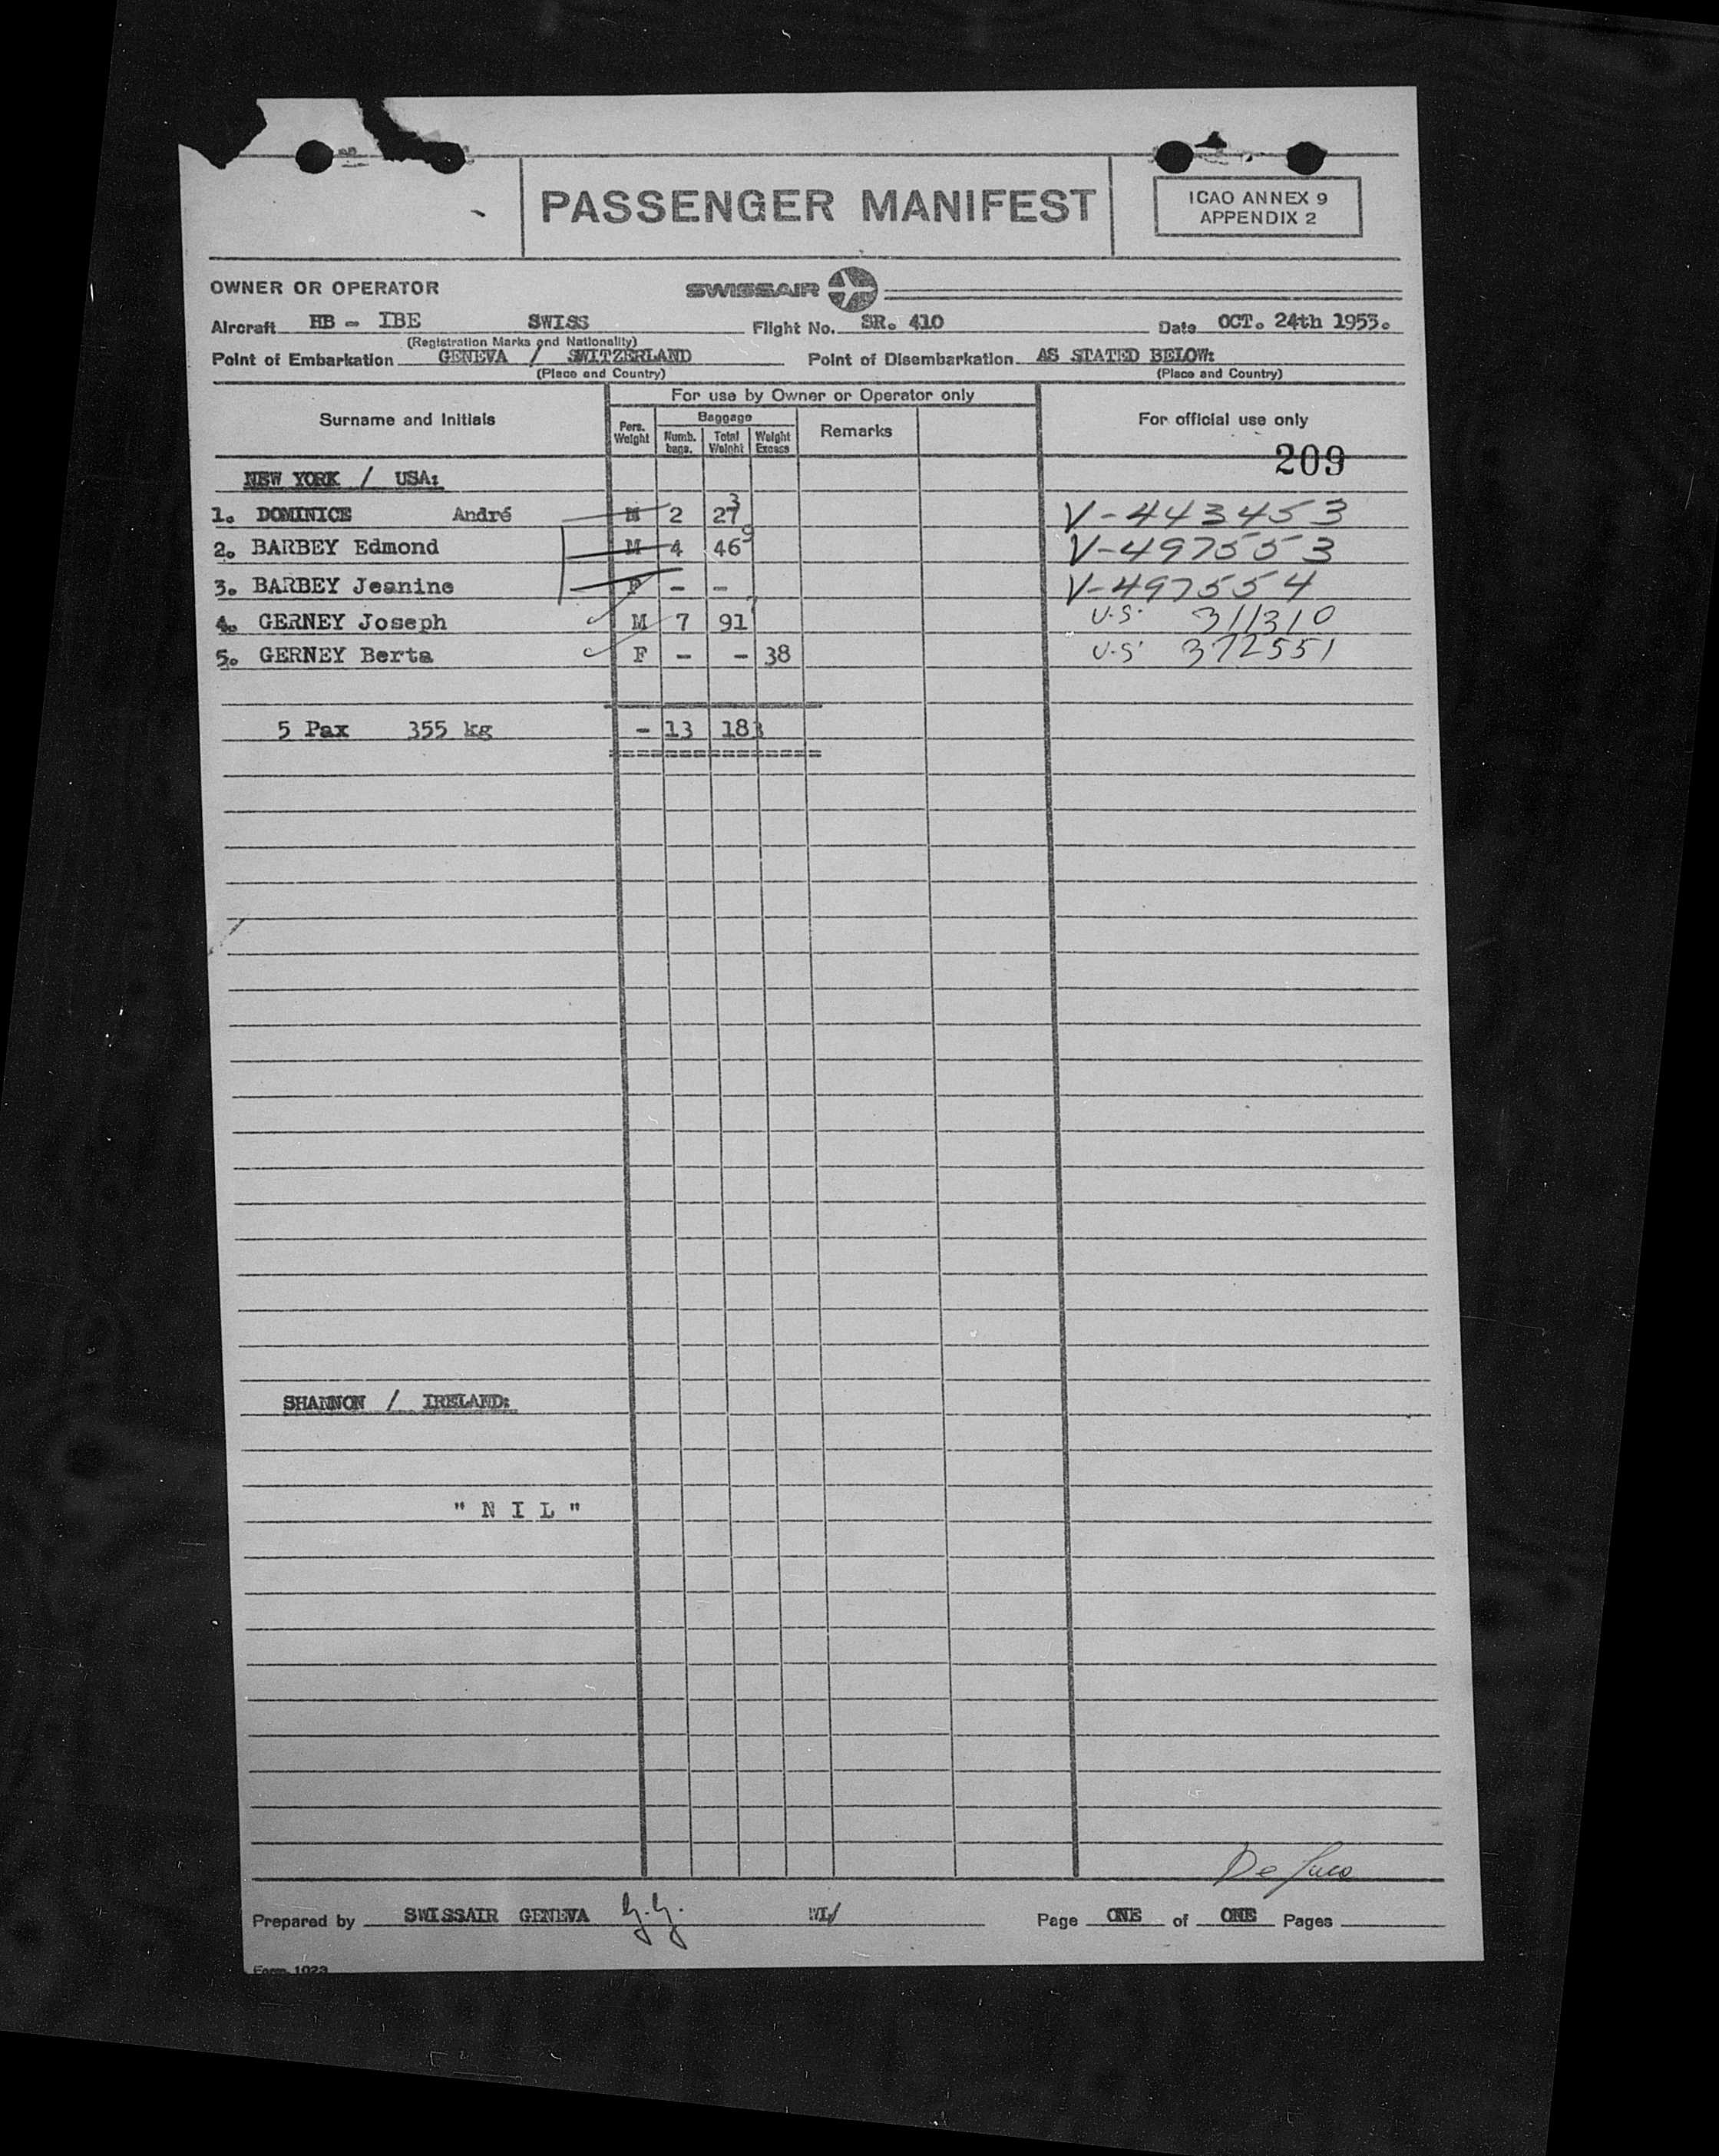 PASSENGER MANIFEST
ICAO ANNEX 9
APPENDIX 2
OWNER OR OPERATOR SWISSAIR
Aircraft HB - IBE SWISS Flight No. SR. 410 Date OCT. 24th 1953.
(Registration Marks and Nationality)
Point of Embarkation GENEVA / SWITZERLAND Point of Disembarkation AS STATED BELOW:
(Place and Country) (Place and Country)
For use by Owner or Operator only
Surname and Initials Pers. Weight Baggage Remarks For official use only
Numb. bags. Total Weight Weight Excess
209
NEW YORK / USA:
1. DOMINICE André M 2 27 3 V-443453
2. BARBEY Edmond M 4 46 9 V-497553
3. BARBEY Jeanine F - - V-497554
4. GERNEY Joseph M 7 91 U.S. 311310
5. GERNEY Berta F - - 38 U.S. 372551
5 Pax 355 kg - 13 183
SHANNON / IRELAND:
"N I L"
De Luca
Prepared by SWISSAIR GENEVA WL/ Page ONE of ONE Pages
Form 1023